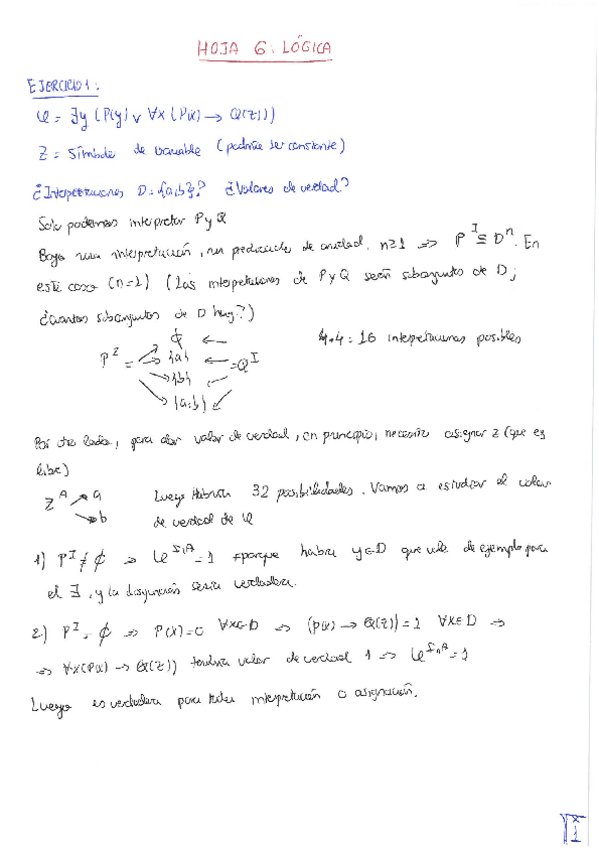 HOJA 6: LÓGICA
EJERCICIO 1:
φ = ∃y (P(y) ∨ ∀x (P(x) → Q(z)))
Z = Símbolo de variable (podría ser constante)
¿Interpretaciones D = {a,b}? ¿Valores de verdad?
Solo podemos interpretar P y Q
Bajo una interpretación, un predicado de aridad. n≥1 ⇒ P^I ⊆ D^n. En
este caso (n=1) (Las interpretaciones de P y Q serán subconjuntos de D;
¿Cuantos subconjuntos de D hay?)
∅ ←
P^I = {a} ← = Q^I
{b}
{a,b}
4·4 = 16 interpretaciones posibles
Por otro lado, para dar valor de verdad, en principio, necesito asignar z (que es
libre)
Z^A a
b
Luego habría 32 posibilidades. Vamos a estudiar el valor
de verdad de φ
1) P^I ≠ ∅ ⇒ φ^I,A = 1 porque habrá y∈D que vale de ejemplo para
el ∃, y la disyunción sería verdadera.
2) P^I = ∅ ⇒ P(x)=0 ∀x∈D ⇒ (P(x) → Q(z)) = 1 ∀x∈D ⇒
⇒ ∀x(P(x) → Q(z)) tendría valor de verdad 1 ⇒ φ^I,A = 1
Luego es verdadera para toda interpretación o asignación.